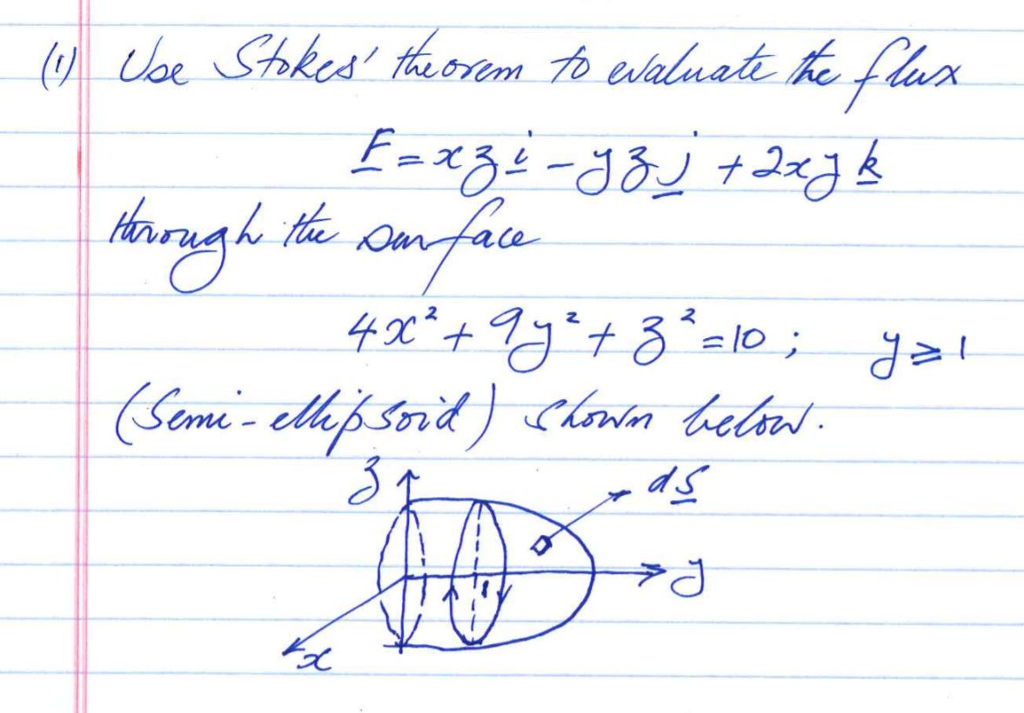 (1) Use Stokes' theorem to evaluate the flux
F = xz i - yz j + 2xy k
through the surface
4x² + 9y² + z² = 10 ; y ≥ 1
(Semi-ellipsoid) shown below.
z
dS
1
y
x